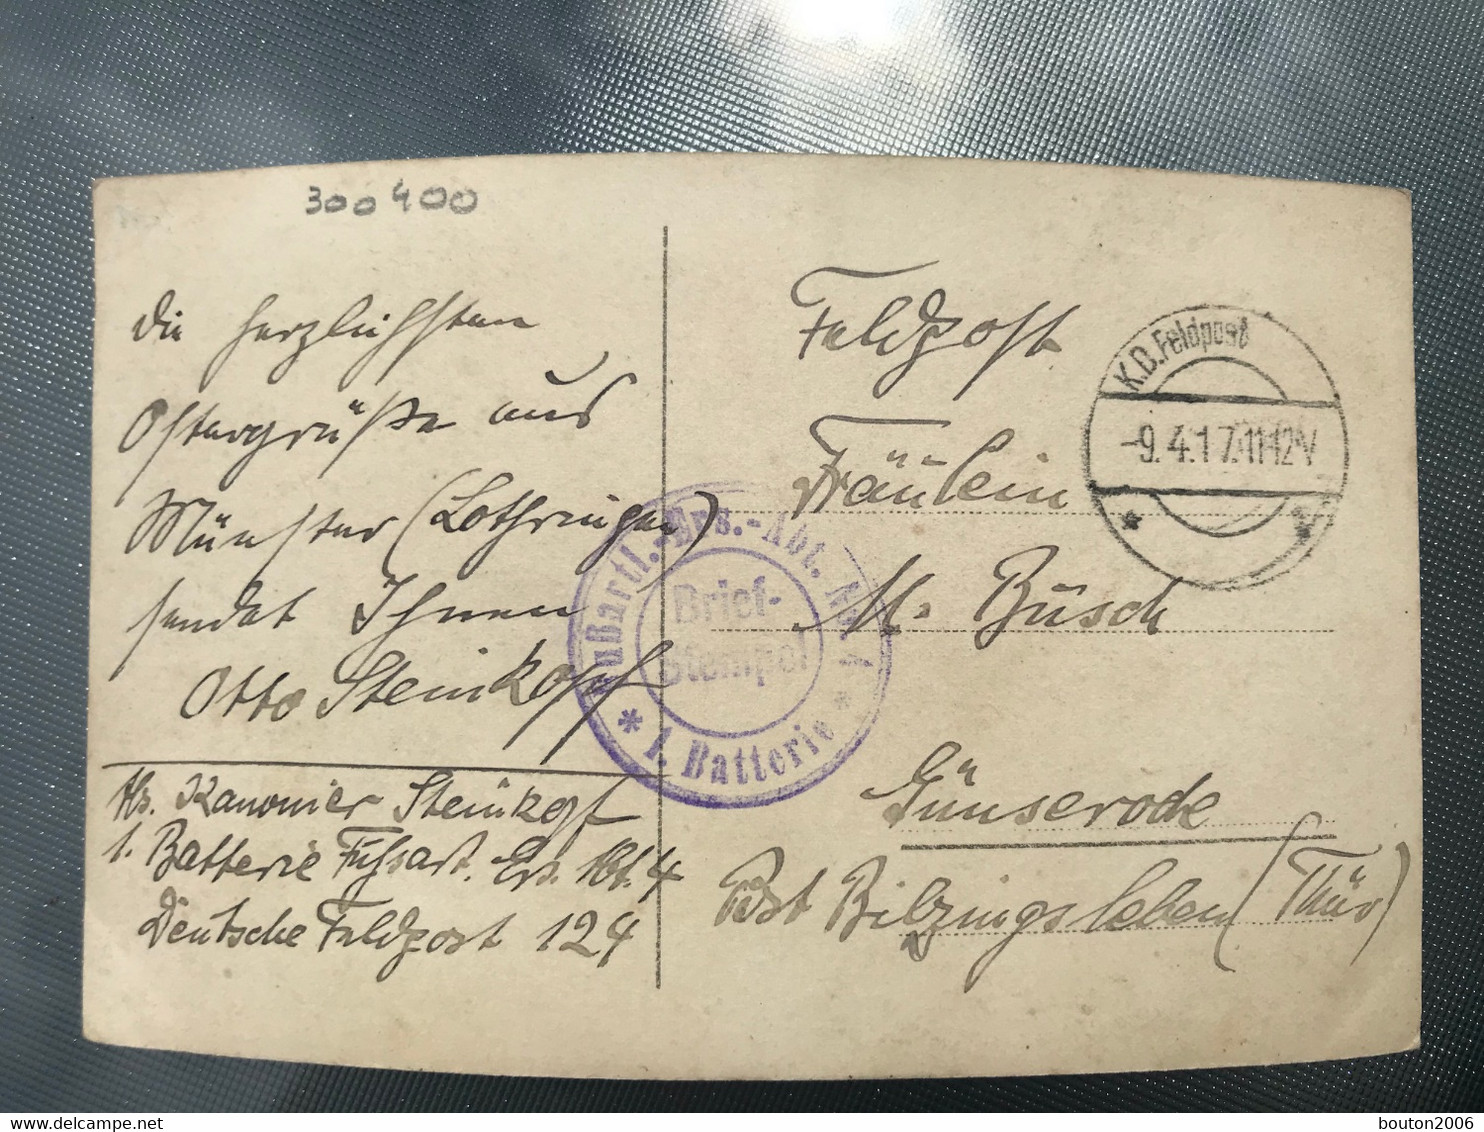 300 400
Die herzlichsten
Ostergrüße aus
Münster (Lothringen)
sendet Ihnen
Otto Steinkopf
Abs. Kanonier Steinkopf
1. Batterie Fußart. Ers. Abt. 4
Deutsche Feldpost 124
Feldpost
Fräulein
M. Büsch
Günserode
Post Bilzingsleben (Thür)
K.D. Feldpost
-9.4.17.11-12V
* *
Fußartl.-Ers.-Abt. No. 4
Brief-
Stempel
* 1. Batterie *
delcampe.net
bouton2006